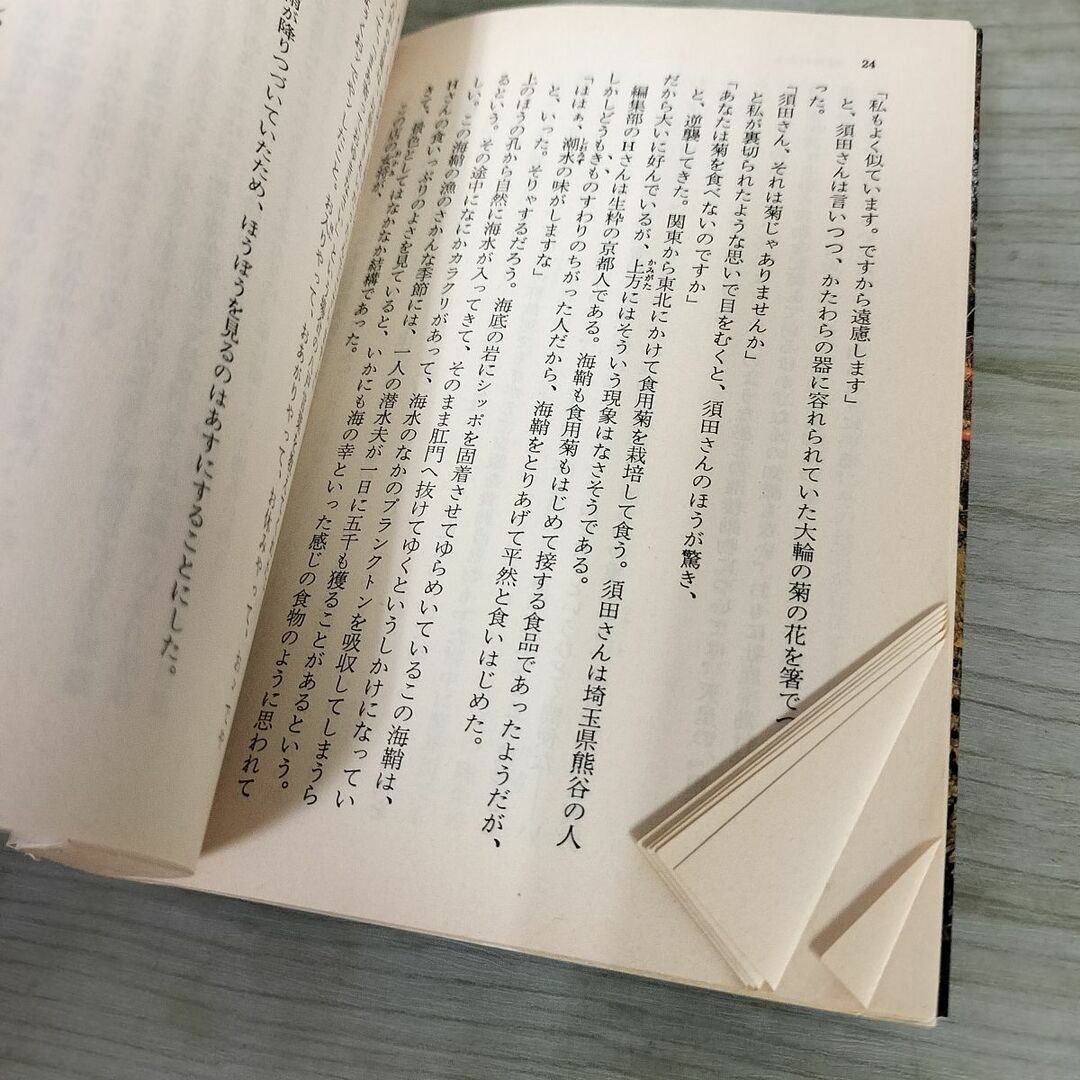 24
「私もよく似ています。ですから遠慮します」
と、須田さんは言いつつ、かたわらの器に容れられていた大輪の菊の花を箸でつ
った。
「須田さん、それは菊じゃありませんか」
と私が裏切られたような思いで目をむくと、須田さんのほうが驚き、
「あなたは菊を食べないのですか」
と、逆襲してきた。関東から東北にかけて食用菊を栽培して食う。須田さんは埼玉県熊谷の人
だから大いに好んでいるが、上方にはそういう現象はなさそうである。
編集部のHさんは生粋の京都人である。海鞘も食用菊もはじめて接する食品であったようだが、
しかしどうもきものすわりのちがった人だから、海鞘をとりあげて平然と食いはじめた。
「ははぁ、潮水の味がしますな」
と、いった。そりゃするだろう。海底の岩にシッポを固着させてゆらめいているこの海鞘は、
上のほうの孔から自然に海水が入ってきて、そのまま肛門へ抜けてゆくというしかけになってい
るという。その途中になにかカラクリがあって、海水のなかのプランクトンを吸収してしまうら
しい。この海鞘の漁のさかんな季節には、一人の潜水夫が一日に五千も獲ることがあるという。
Hさんの食いっぷりのよさを見ていると、いかにも海の幸といった感じの食物のように思われて
きて、景色としてはなかなか結構であった。
この店の女将が、
雨が降りつづいていたため、ほうぼうを見るのはあすにすることにした。